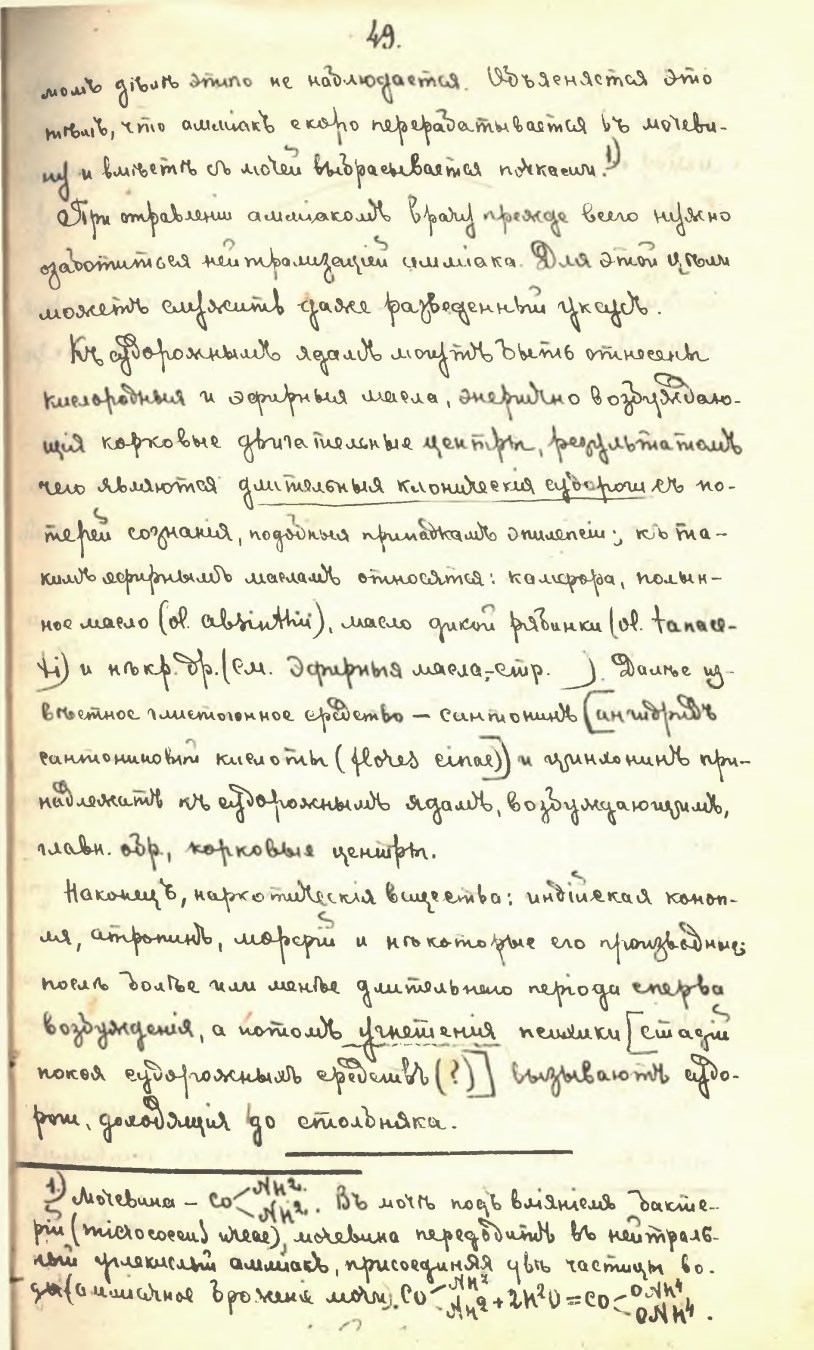 49.
момъ дѣлѣ этого не наблюдается. Объясняется это
тѣмъ, что амміакъ скоро перерабатывается въ мочеви-
ну и вмѣстѣ съ мочей выбрасывается почками.¹)
При отравленіи амміакомъ врачу прежде всего нужно
озаботиться нейтрализаціей амміака. Для этой цѣли
можетъ служить даже разведенный уксусъ.
Къ судорожнымъ ядамъ могутъ быть отнесены
кислородныя и эфирныя масла, энергично возбуждаю-
щія корковые двигательные центры, результатомъ
чего являются длительныя клоническія судороги съ по-
терей сознанія, подобныя припадкамъ эпилепсіи; къ та-
кимъ эфирнымъ масламъ относятся: камфора, полын-
ное масло (ol. absinthii), масло дикой рябинки (ol. tanace-
ti) и нѣкр. др. (см. Эфирныя масла,-стр.      ). Далѣе из-
вѣстное глистогонное средство – сантонинъ [ангидридъ
сантониновой кислоты (flores cinae)] и цинхонинъ при-
надлежатъ къ судорожнымъ ядамъ, возбуждающимъ,
главн. обр., корковые центры.
Наконецъ, наркотическія вещества: индійская коноп-
ля, атропинъ, морфій и нѣкоторые его производные;
послѣ болѣе или менѣе длительнаго періода сперва
возбужденія, а потомъ угнетенія психики [стадій
покоя судорожныхъ средствъ (?)] вызываютъ судо-
роги, доходящія до столбняка.
1) Мочевина – CO<NH². NH². Въ мочѣ подъ вліяніемъ бакте-
рій (micrococcus ureae), мочевина переходитъ въ нейтраль-
ный углекислый амміакъ, присоединяя двѣ частицы во-
ды (амміачное броженіе мочи). CO<NH² NH² + 2H²O = CO<ONH⁴ ONH⁴.